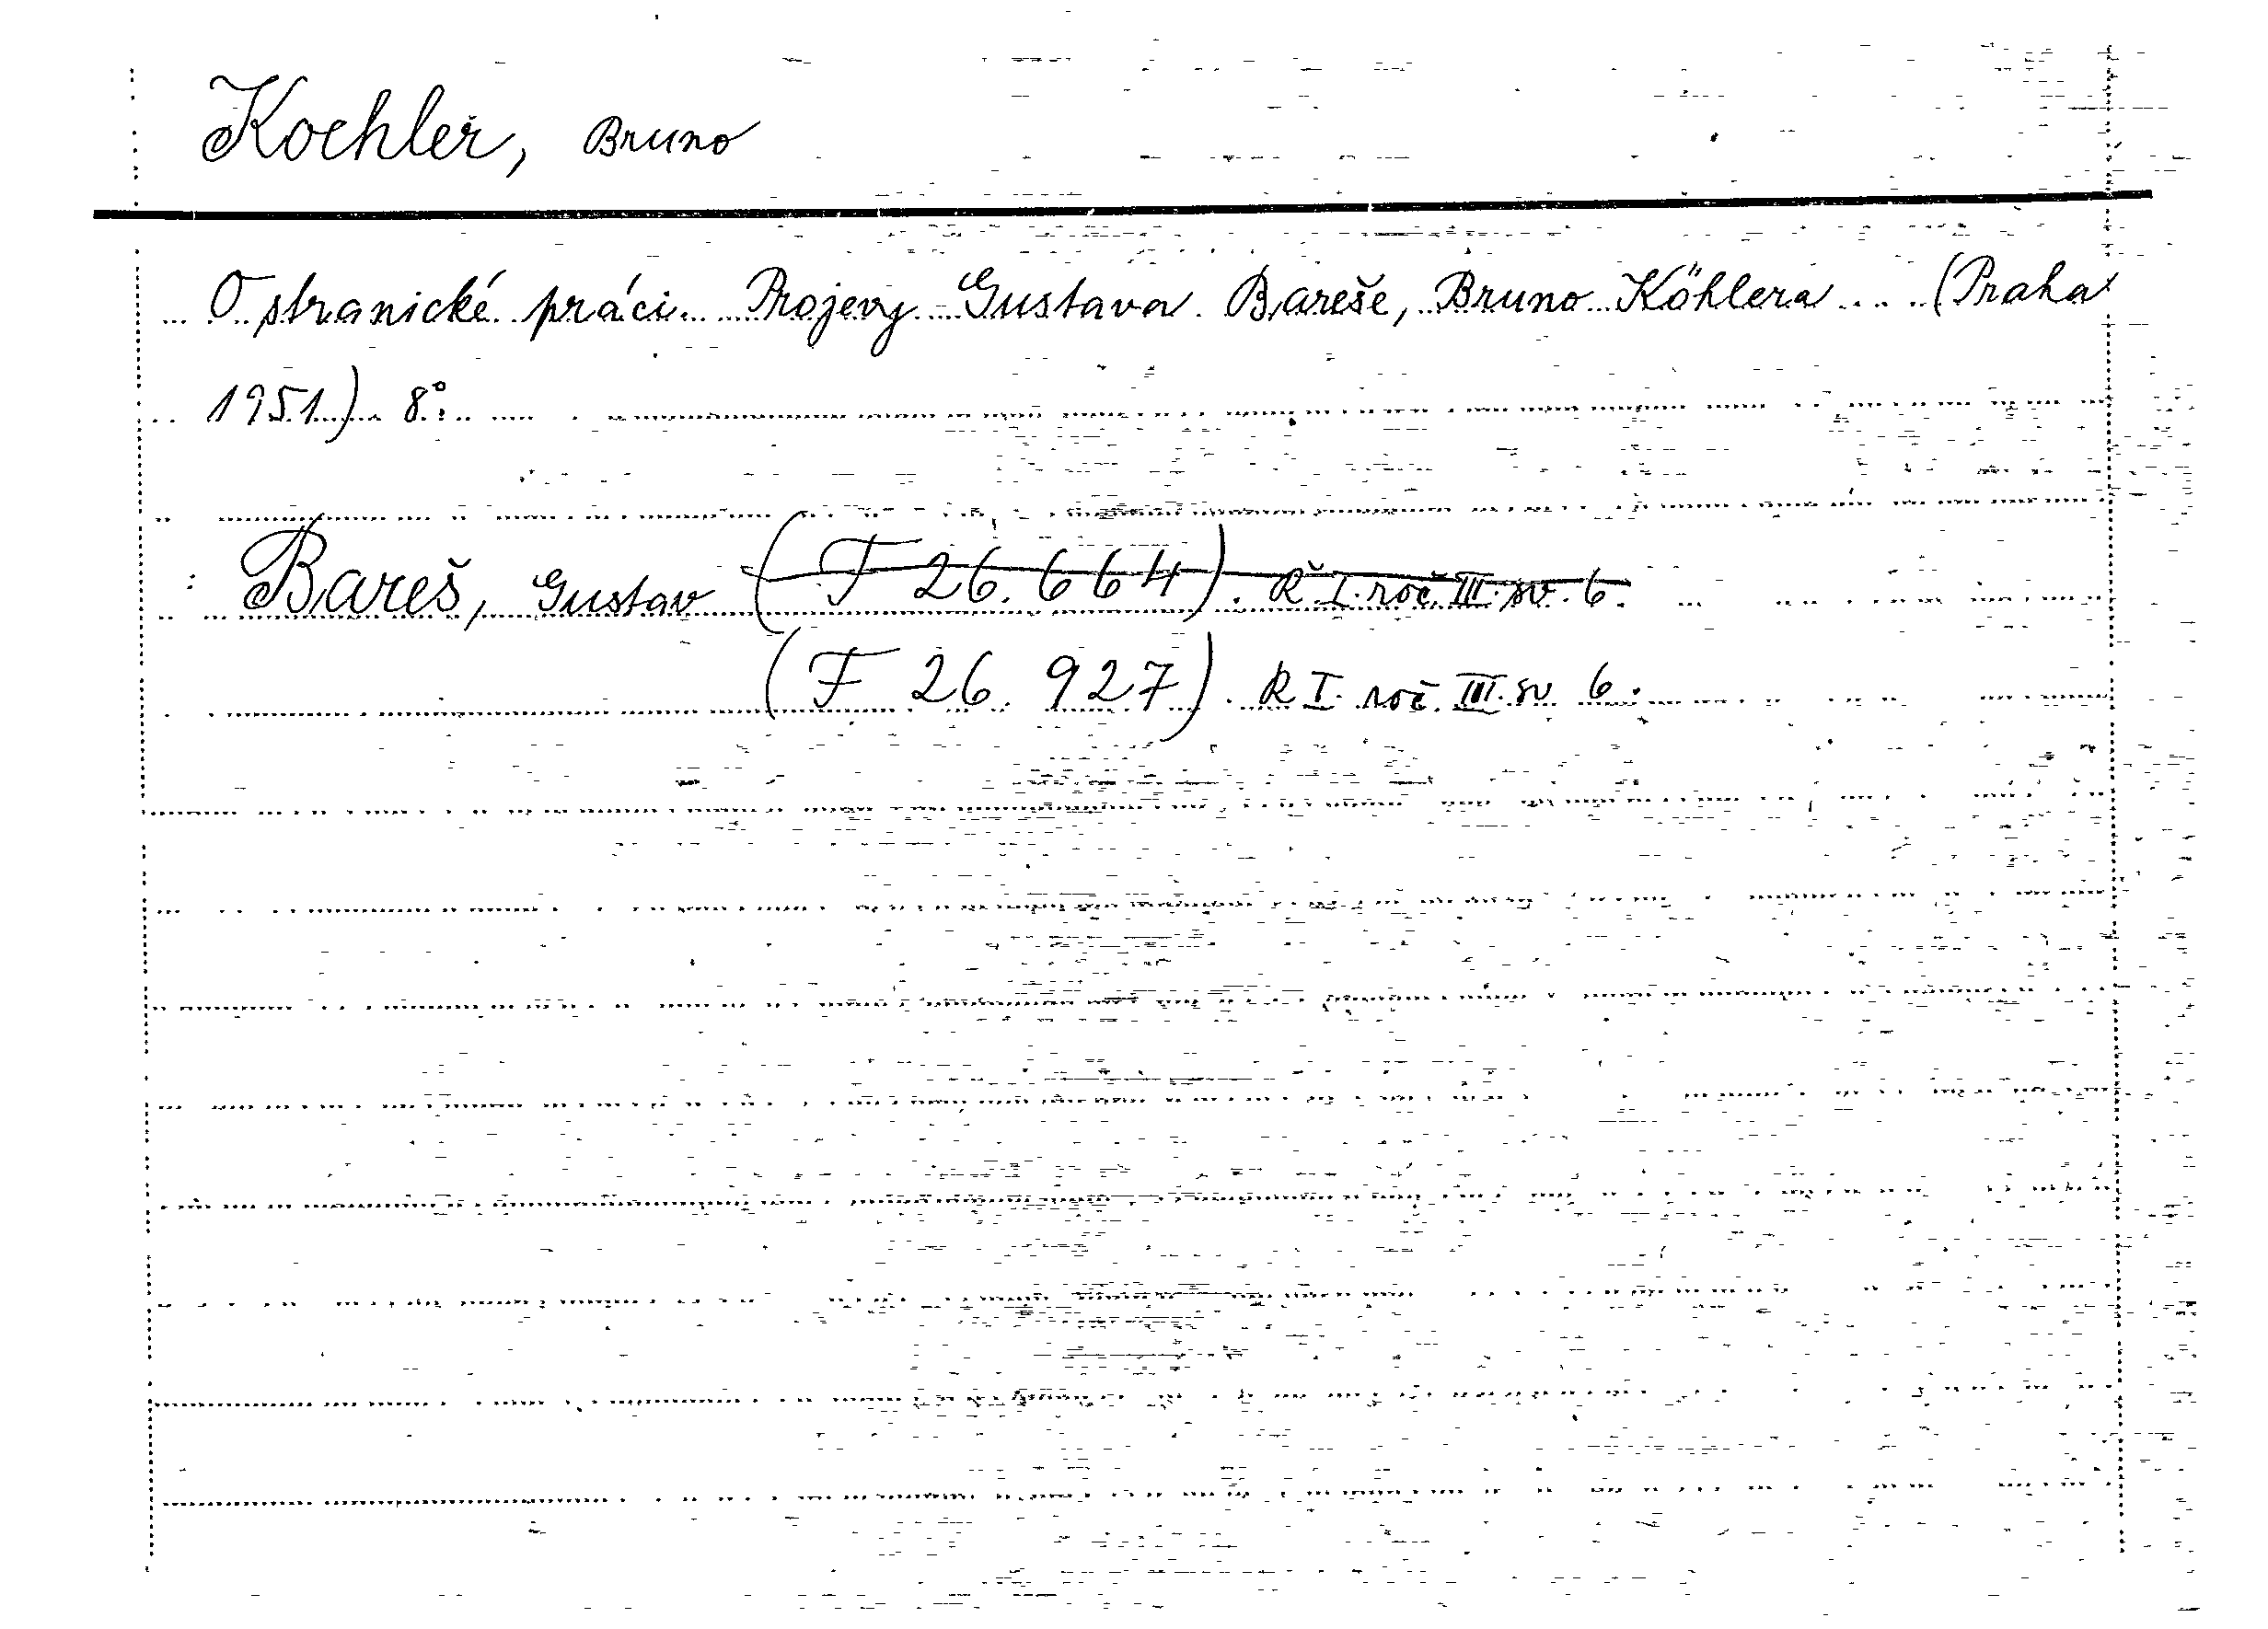 Koehler, Bruno
O stranické práci. Projevy Gustava Bareše, Bruno Köhlera ... (Praha
1951) 8°.
Bareš, Gustav (F 26.664). R I. roč. III. sv. 6.
(F 26.927). R I. roč. III. sv 6.